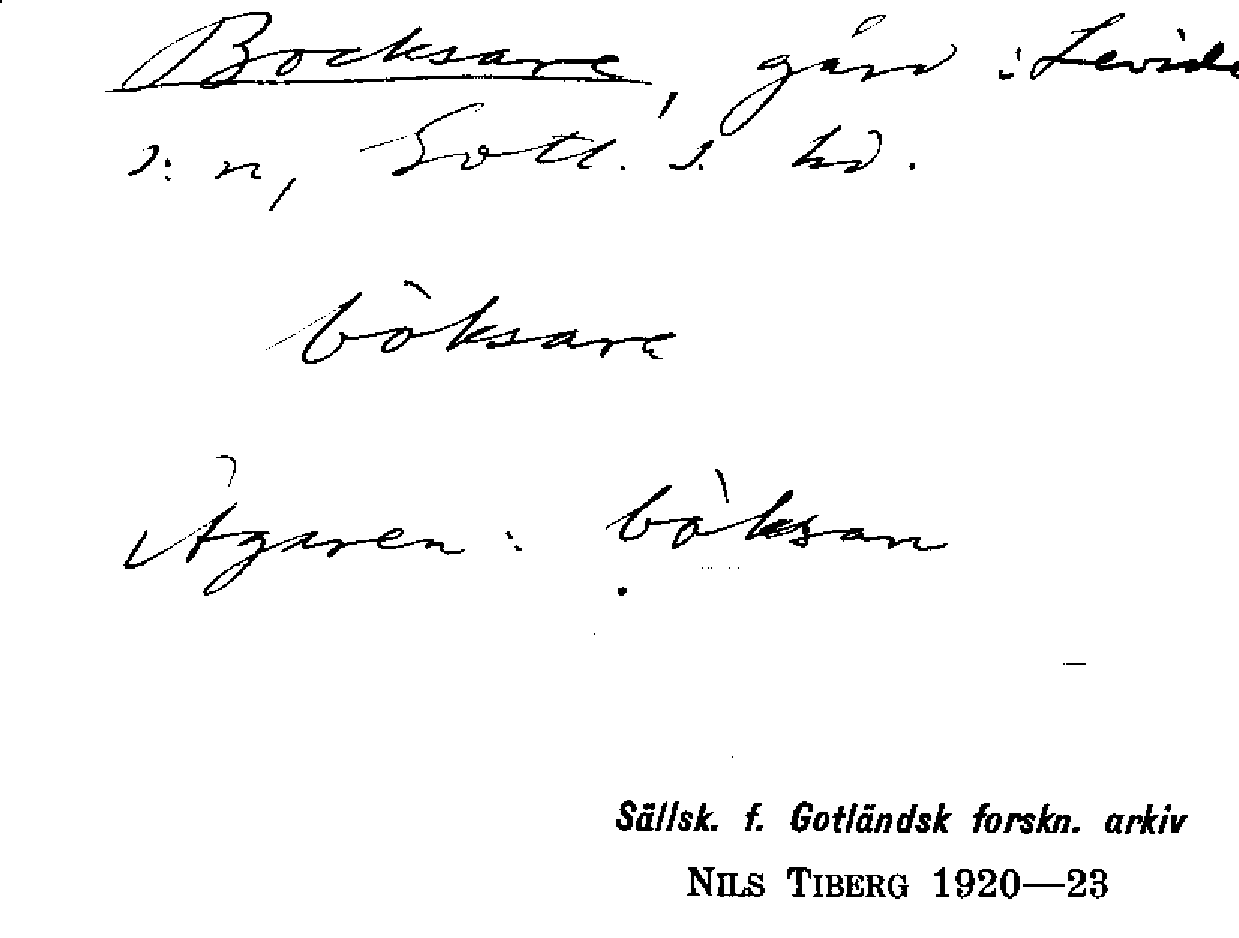 Bocksarve, gård i Levide
s:n, Gotl. s. hd.
bòksarε
Ägaren: bòksan
Sällsk. f. Gotländsk forskn. arkiv
NILS TIBERG 1920—23